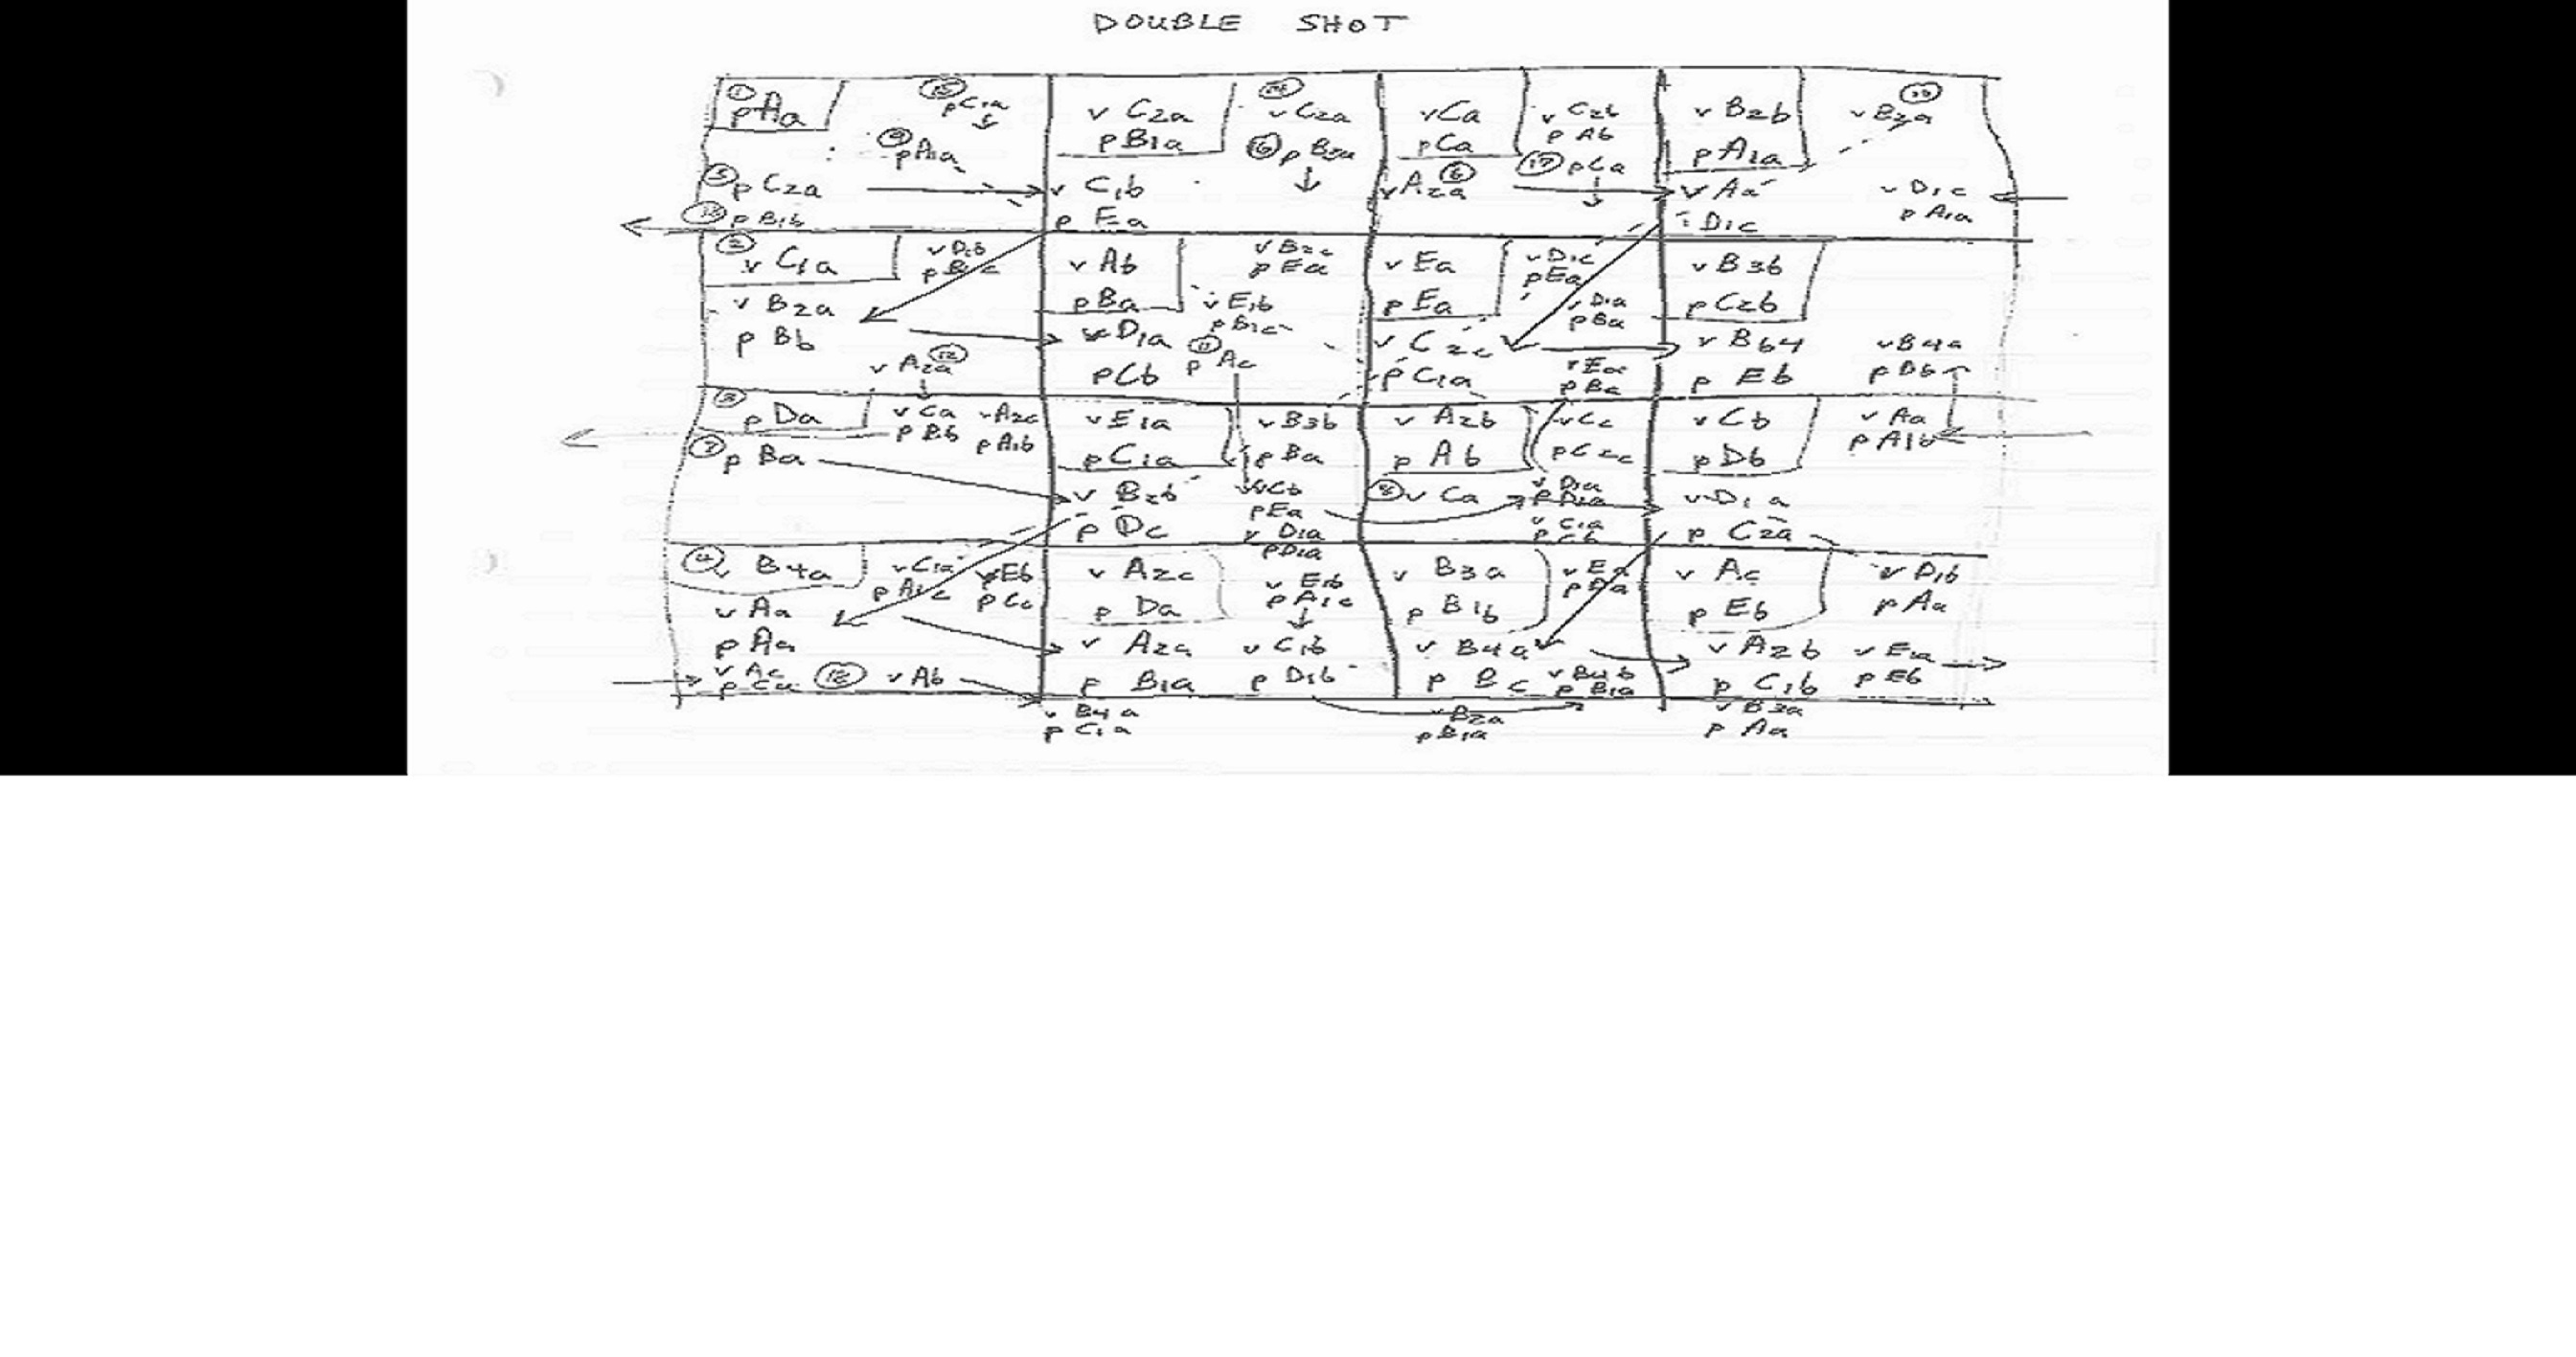 DOUBLE SHOT
① pAa
⑮ pC1a
⑨ pA1a
⑤ pC2a
pB1b
v C2a
pB1a
v C2a
⑥ p B3a
v C1b
p Ea
vCa
pCa
v C2b
p Ab
⑰ pCa
vA2a ⑥
v B2b
pA1a
v Aa
D1c
v D1c
p A1a
② v C1a
v D1b
v B2a
p Bb
v A2a ⑫
v Ab
pBa
v B2c
p Ea
v E1b
pB1c
v D1a
pCb
⑪ p Ac
v Ea
p Ea
v D1c
pEa
v D1a
pBa
v C2c
p C1a
v Ea
p Ba
v B3b
pC2b
v B64
p Eb
v B4a
p Db
③ p Da
v Ca
p Bb
v A2c
p A1b
⑦ p Ba
v E1a
pC1a
v B3b
p Ba
v B2b
p Dc
vCb
pEa
v D1a
pD1a
v A2b
p Ab
vCc
pC2c
⑧ v Ca
v D1a
p D1a
v C1a
p Cb
v Cb
pDb
v Aa
pA1b
v D1a
p C2a
④ v B4a
v C1a
p A1c
v Eb
p Cc
v Aa
p Aa
v Ac
p Ca
⑱ v Ab
v A2c
p Da
v E1b
p A1c
v A2a
p B1a
v C1b
p D1b
v B3a
p B1b
v Ea
p Da
v B4a
p Bc
v B4b
p B1a
v Ac
p Eb
v D1b
p Aa
v A2b
p C1b
v Ea
p Eb
v B4a
p C1a
v B2a
pB1a
v B3a
p Aa